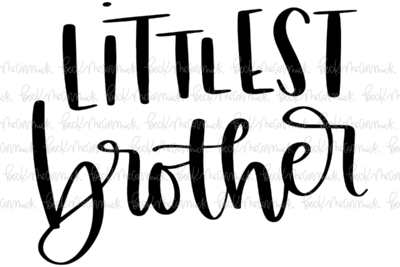 LiTTLEST
brother